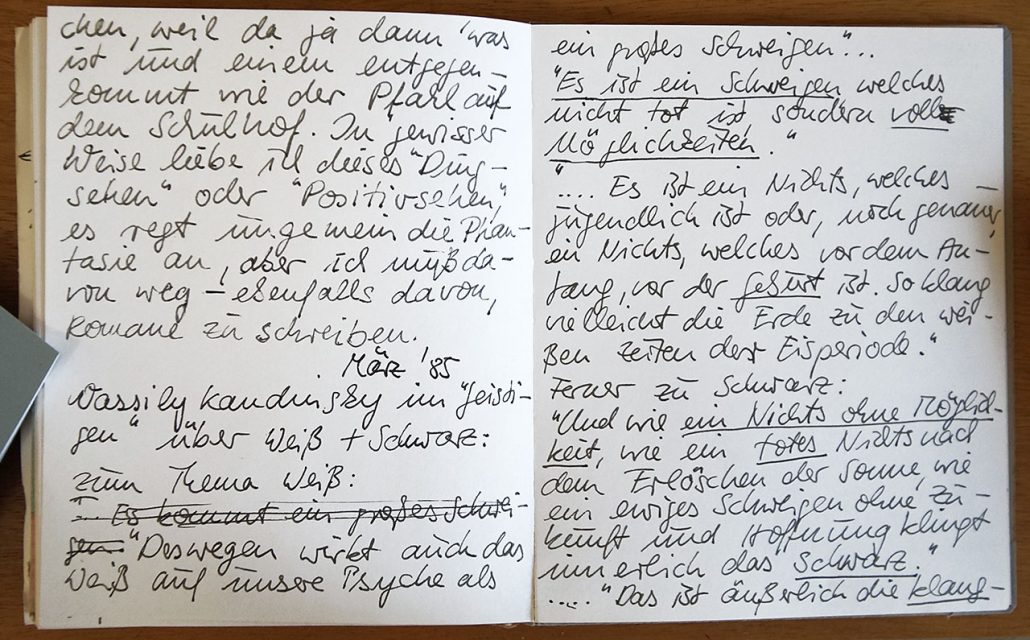 chen, weil da ja dann 'was
ist und einem entgegen-
kommt wie der Pfahl auf
dem Schulhof. In gewisser
Weise liebe ich dieses "Ding-
sehen" oder "Positivsehen",
es regt ungemein die Phan-
tasie an, aber ich muß da-
von weg – ebenfalls davon,
Romane zu schreiben.
März '85
Wassily Kandinsky im "Geisti-
gen" über Weiß + Schwarz:
zum Thema Weiß:
"... Es kommt ein großes Schwei-
gen." "Deswegen wirkt auch das
Weiß auf unsere Psyche als
ein großes Schweigen"...
"Es ist ein Schweigen welches
nicht tot ist sondern voll
Möglichkeiten."
".... Es ist ein Nichts, welches
jugendlich ist oder, noch genauer,
ein Nichts, welches vor dem An-
fang, vor der Geburt ist. So klang
vielleicht die Erde zu den wei-
ßen Zeiten der Eisperiode."
Ferner zu Schwarz:
"Und wie ein Nichts ohne Möglich-
keit, wie ein totes Nichts nach
dem Erlöschen der Sonne, wie
ein ewiges Schweigen ohne Zu-
kunft und Hoffnung klingt
innerlich das Schwarz."
..... "Das ist äußerlich die klang-